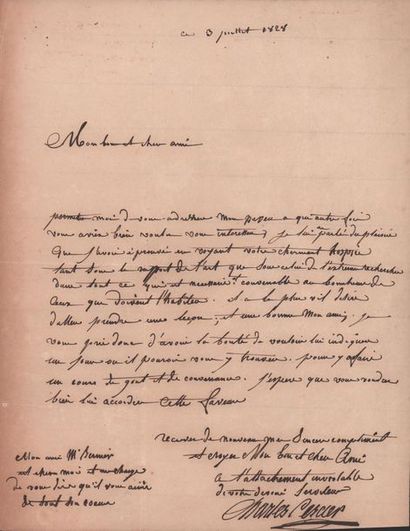 ce 3 juillet 1828
Mon bon et cher ami
permete moi d vous adresser mon neveu a qui autre fois
vous aviés bien voulu vous interesser, je lui parlé du plaisir
que j'avois éprouvé en voyant votre charment hospice
tant sous le raport de l'art que sous celui de l'extreme recherche
dans tout ce qui est necessaire convenable au bonheur de
ceux qui doivent l'habiter. il a le plus vif desir
d'aller prendre une leçon, et une bonne mon ami, je
vous prie donc d'avoir la bonté de vouloir lui indiquer
un jour ou il pouroit vous y trouver. pour y faire
un cours de gout et de convenance. j'espere que vous voudrez
bien lui accorder cette faveur
recevez de nouveau mes sincere compliment
et croyez mon bon et cher ami
a l'attachement inviolable
de votre devoué serviteur
Charles Percier
Mon ami Mr Bernier
est chez moi et me charge
de vous dire qu'il vous aime
de tout son coeur